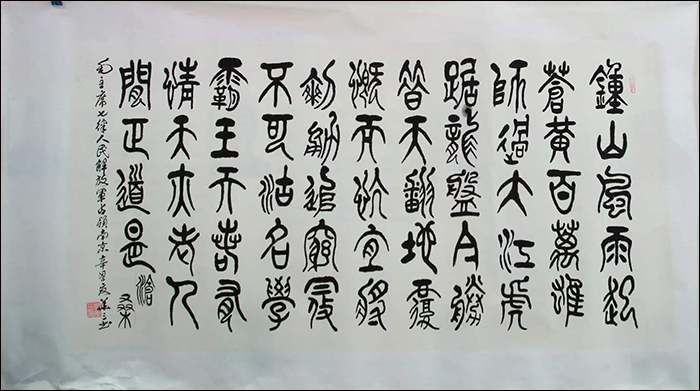 鍾山風雨起
蒼黃百萬雄
師過大江虎
踞龍盤今勝
昔天翻地覆
慨而慷宜將
剩勇追窮寇
不可沽名學
霸王天若有
情天亦老人
間正道是滄
桑
毛主席七律人民解放軍占領南京辛卯夏